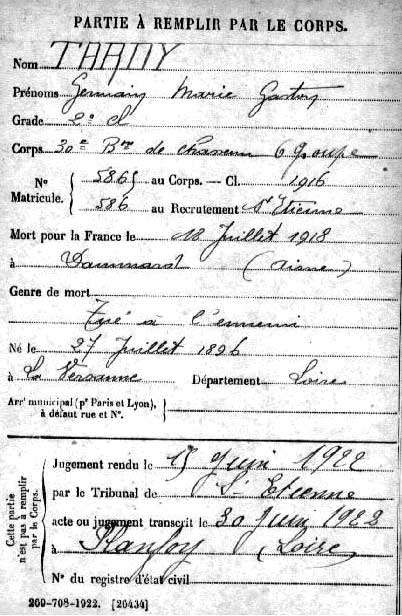 PARTIE À REMPLIR PAR LE CORPS.
Nom TARDY
Prénoms Germain Marie Gaston
Grade 2e Cl
Corps 30e Bon de chasseurs 6 groupe
No Matricule. { 5865 au Corps. — Cl. 1916
586 au Recrutement St Etienne
Mort pour la France le 18 Juillet 1918
à Dammard (Aisne)
Genre de mort
Tué à l'ennemi
Né le 27 Juillet 1896
à La Versanne Département Loire
Arrt municipal (pr Paris et Lyon), à défaut rue et No. {
Cette partie n'est pas à remplir par le Corps.
Jugement rendu le 15 Juin 1922
par le Tribunal de St Etienne
acte ou jugement transcrit le 30 Juin 1922
à Planfoy (Loire)
No du registre d'état civil
260-708-1922. [20434]